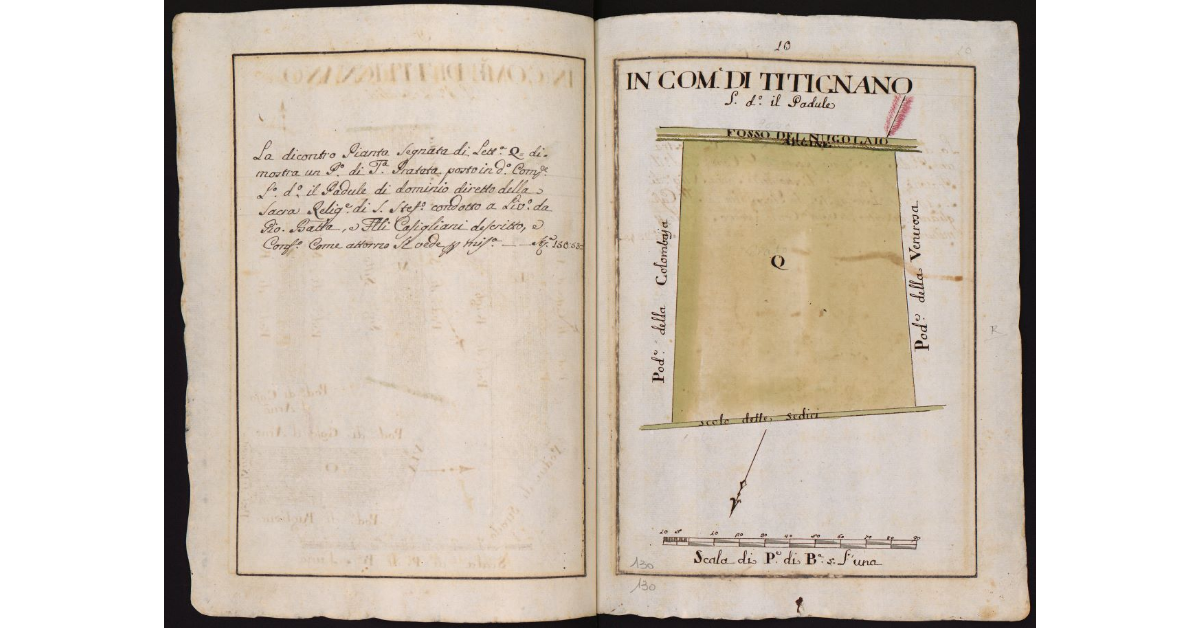 La dicontro Pianta Segnata di Lett.ª Q di-
mostra un P.º di T.ª Pratata posto in d.º Com.e
L.º d.º il Padule di dominio diretto della
Sacra Relig.e di S. Stef.º condotto a Liv.º da
Gio. Batta, e Flli Casigliani descritto, e
Conf.º Come attorno Si vede
10
IN COM: DI TITIGNANO
L.º d.º il Padule
FOSSO DEL NUGOLAIO
ARGINE
Pod.e della Colombaja
Q
Pod.e della Venerosa
R
Scolo delle Sedici
10 5 10 20 30 40 50 60 70 80 90
Scala di P.e di B.a 5: l'una
130
130